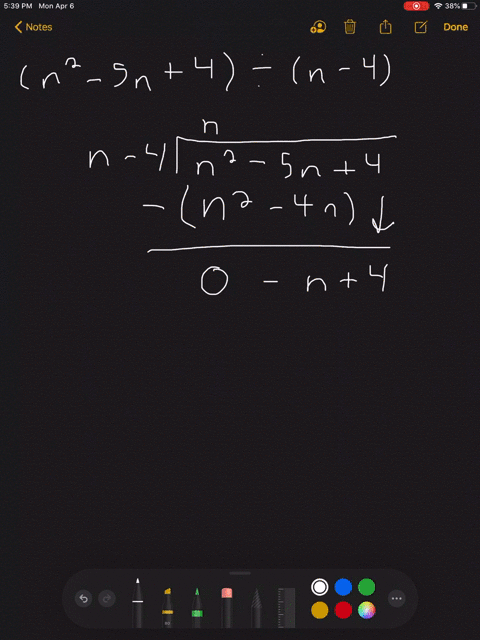 5:39 PM Mon Apr 6 38%
Notes Done
(n² - 5n + 4) ÷ (n - 4)
n
n - 4 n² - 5n + 4
- (n² - 4n) ↓
0 - n + 4